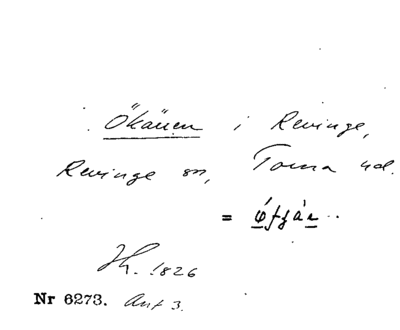 Ökänen i Revinge,
Revinge sn, Torna hd.
=
Hh. 1826
Nr 6273. Ant 3.